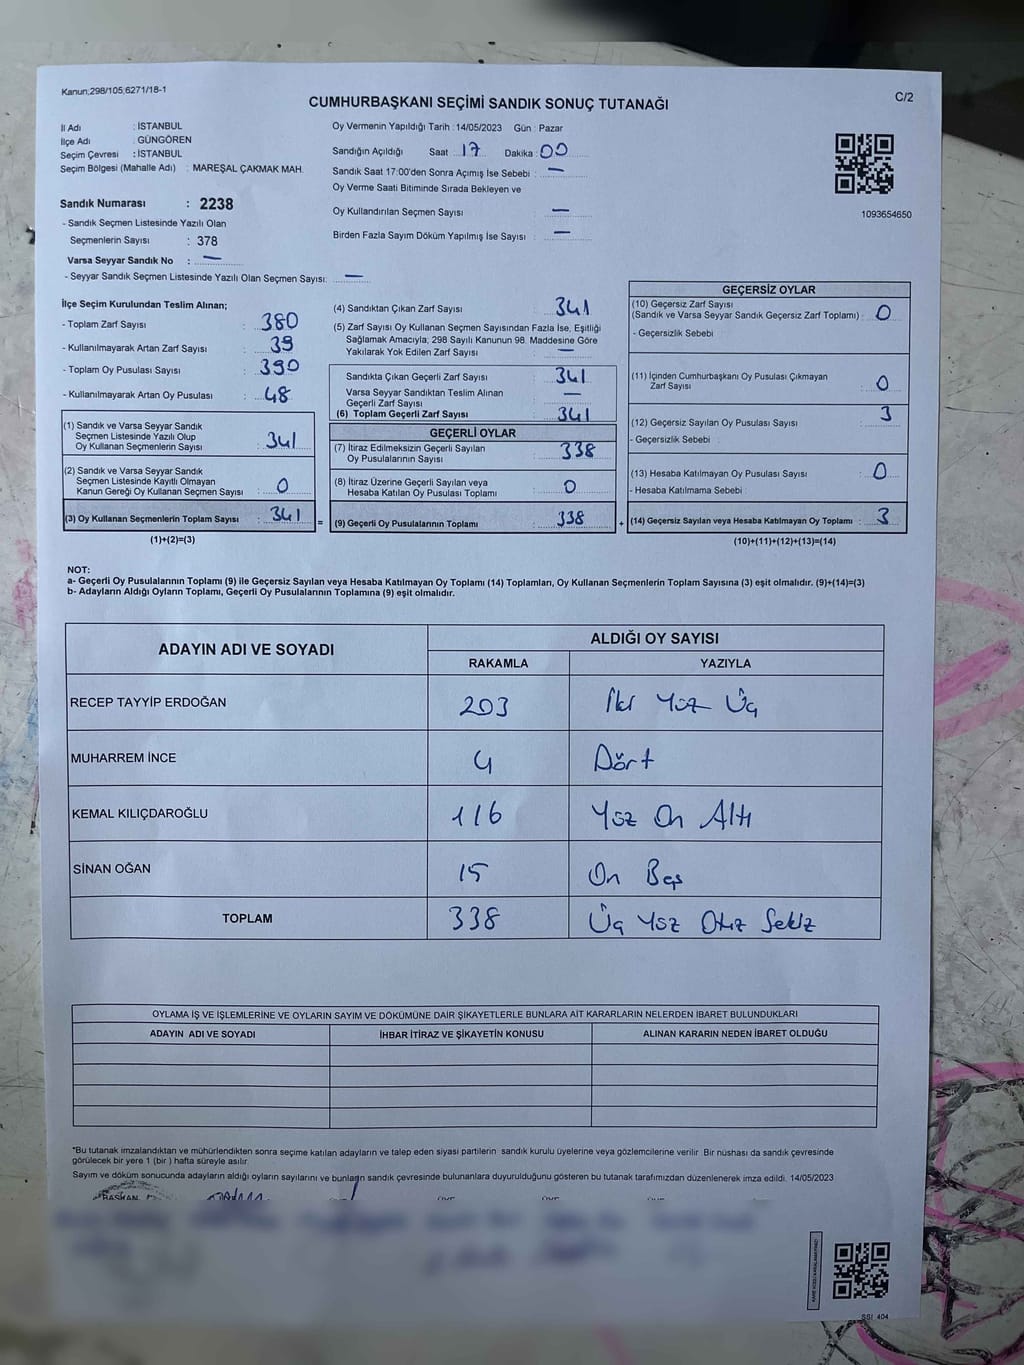 Kanun;298/105;6271/18-1
C/2
CUMHURBAŞKANI SEÇİMİ SANDIK SONUÇ TUTANAĞI
İl Adı : İSTANBUL
İlçe Adı : GÜNGÖREN
Seçim Çevresi : İSTANBUL
Seçim Bölgesi (Mahalle Adı) : MAREŞAL ÇAKMAK MAH.
Sandık Numarası : 2238
- Sandık Seçmen Listesinde Yazılı Olan
Seçmenlerin Sayısı : 378
Varsa Seyyar Sandık No : —
- Seyyar Sandık Seçmen Listesinde Yazılı Olan Seçmen Sayısı: —
Oy Vermenin Yapıldığı Tarih : 14/05/2023 Gün : Pazar
Sandığın Açıldığı Saat : 17 Dakika : 00
Sandık Saat 17:00'den Sonra Açımış İse Sebebi : —
Oy Verme Saati Bitiminde Sırada Bekleyen ve
Oy Kullandırılan Seçmen Sayısı : —
Birden Fazla Sayım Döküm Yapılmış İse Sayısı : —
1093654650
İlçe Seçim Kurulundan Teslim Alınan;
- Toplam Zarf Sayısı : 380
- Kullanılmayarak Artan Zarf Sayısı : 39
- Toplam Oy Pusulası Sayısı : 390
- Kullanılmayarak Artan Oy Pusulası : 48
(1) Sandık ve Varsa Seyyar Sandık
Seçmen Listesinde Yazılı Olup
Oy Kullanan Seçmenlerin Sayısı : 341
(2) Sandık ve Varsa Seyyar Sandık
Seçmen Listesinde Kayıtlı Olmayan
Kanun Gereği Oy Kullanan Seçmen Sayısı : 0
(3) Oy Kullanan Seçmenlerin Toplam Sayısı : 341
(1)+(2)=(3)
(4) Sandıktan Çıkan Zarf Sayısı : 341
(5) Zarf Sayısı Oy Kullanan Seçmen Sayısından Fazla İse, Eşitliği
Sağlamak Amacıyla; 298 Sayılı Kanunun 98. Maddesine Göre
Yakılarak Yok Edilen Zarf Sayısı : —
Sandıkta Çıkan Geçerli Zarf Sayısı : 341
Varsa Seyyar Sandıktan Teslim Alınan
Geçerli Zarf Sayısı : —
(6) Toplam Geçerli Zarf Sayısı : 341
GEÇERLİ OYLAR
(7) İtiraz Edilmeksizin Geçerli Sayılan
Oy Pusulalarının Sayısı : 338
(8) İtiraz Üzerine Geçerli Sayılan veya
Hesaba Katılan Oy Pusulası Toplamı : 0
= (9) Geçerli Oy Pusulalarının Toplamı : 338
GEÇERSİZ OYLAR
(10) Geçersiz Zarf Sayısı
(Sandık ve Varsa Seyyar Sandık Geçersiz Zarf Toplamı) : 0
- Geçersizlik Sebebi :
(11) İçinden Cumhurbaşkanı Oy Pusulası Çıkmayan
Zarf Sayısı : 0
(12) Geçersiz Sayılan Oy Pusulası Sayısı : 3
- Geçersizlik Sebebi :
(13) Hesaba Katılmayan Oy Pusulası Sayısı : 0
- Hesaba Katılmama Sebebi :
+ (14) Geçersiz Sayılan veya Hesaba Katılmayan Oy Toplamı : 3
(10)+(11)+(12)+(13)=(14)
NOT:
a- Geçerli Oy Pusulalarının Toplamı (9) ile Geçersiz Sayılan veya Hesaba Katılmayan Oy Toplamı (14) Toplamları, Oy Kullanan Seçmenlerin Toplam Sayısına (3) eşit olmalıdır. (9)+(14)=(3)
b- Adayların Aldığı Oyların Toplamı, Geçerli Oy Pusulalarının Toplamına (9) eşit olmalıdır.
ADAYIN ADI VE SOYADI
ALDIĞI OY SAYISI
RAKAMLA YAZIYLA
RECEP TAYYİP ERDOĞAN 203 İki Yüz Üç
MUHARREM İNCE 4 Dört
KEMAL KILIÇDAROĞLU 116 Yüz On Altı
SİNAN OĞAN 15 On Beş
TOPLAM 338 Üç Yüz Otuz Sekiz
OYLAMA İŞ VE İŞLEMLERİNE VE OYLARIN SAYIM VE DÖKÜMÜNE DAİR ŞİKAYETLERLE BUNLARA AİT KARARLARIN NELERDEN İBARET BULUNDUKLARI
ADAYIN ADI VE SOYADI İHBAR İTİRAZ VE ŞİKAYETİN KONUSU ALINAN KARARIN NEDEN İBARET OLDUĞU
*Bu tutanak imzalandıktan ve mühürlendikten sonra seçime katılan adayların ve talep eden siyasi partilerin sandık kurulu üyelerine veya gözlemcilerine verilir. Bir nüshası da sandık çevresinde
görülecek bir yere 1 (bir ) hafta süreyle asılır.
Sayım ve döküm sonucunda adayların aldığı oyların sayılarını ve bunların sandık çevresinde bulunanlara duyurulduğunu gösteren bu tutanak tarafımızdan düzenlenerek imza edildi. 14/05/2023
BAŞKAN